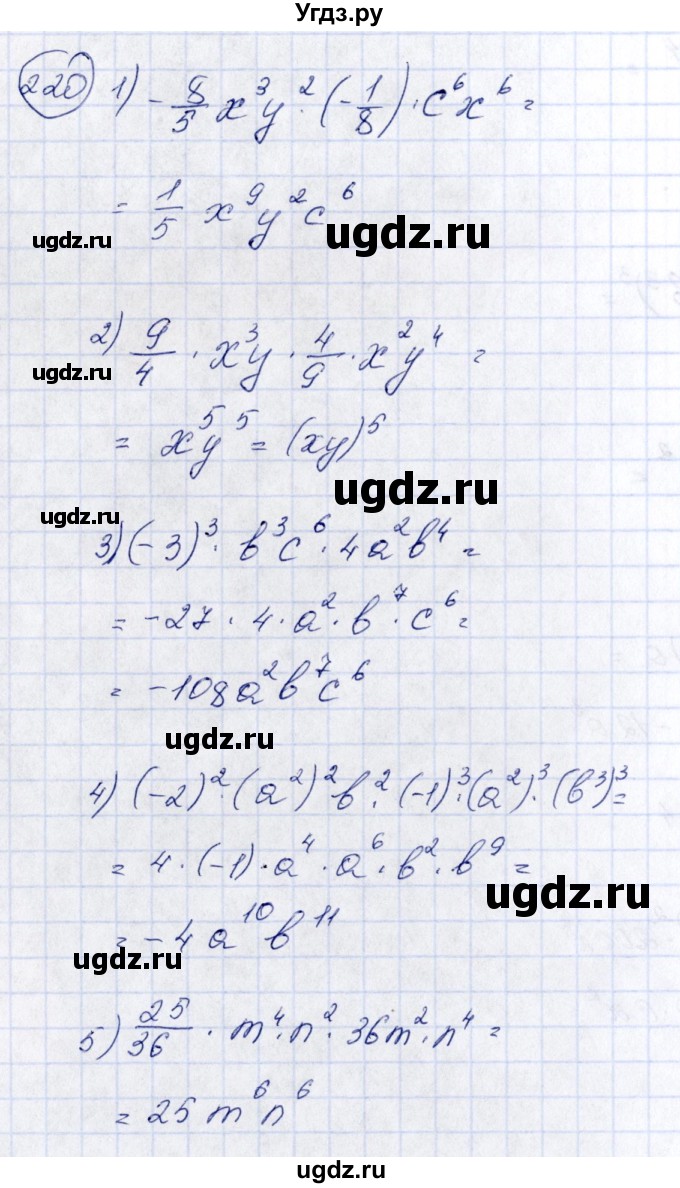 Угдз.ру
220 1) -8/5 x³y² · (-1/8) · c⁶x⁶ =
= 1/5 x⁹y²c⁶
ugdz.ru
ugdz.ru
2) 9/4 · x³y · 4/9 · x²y⁴ =
ugdz.ru
= x⁵y⁵ = (xy)⁵
ugdz.ru
ugdz.ru
3) (-3)³ · b³c⁶ · 4a²b⁴ =
= -27 · 4 · a² · b⁷ · c⁶ =
= -108a²b⁷c⁶
ugdz.ru
4) (-2)² · (a²)² b² · (-1)³ · (a²)³ · (b³)³ =
= 4 · (-1) · a⁴ · a⁶ · b² · b⁹ =
ugdz.ru
= -4a¹⁰b¹¹
ugdz.ru
5) 25/36 · m⁴ · n² · 36m² · n⁴ =
= 25m⁶n⁶
ugdz.ru